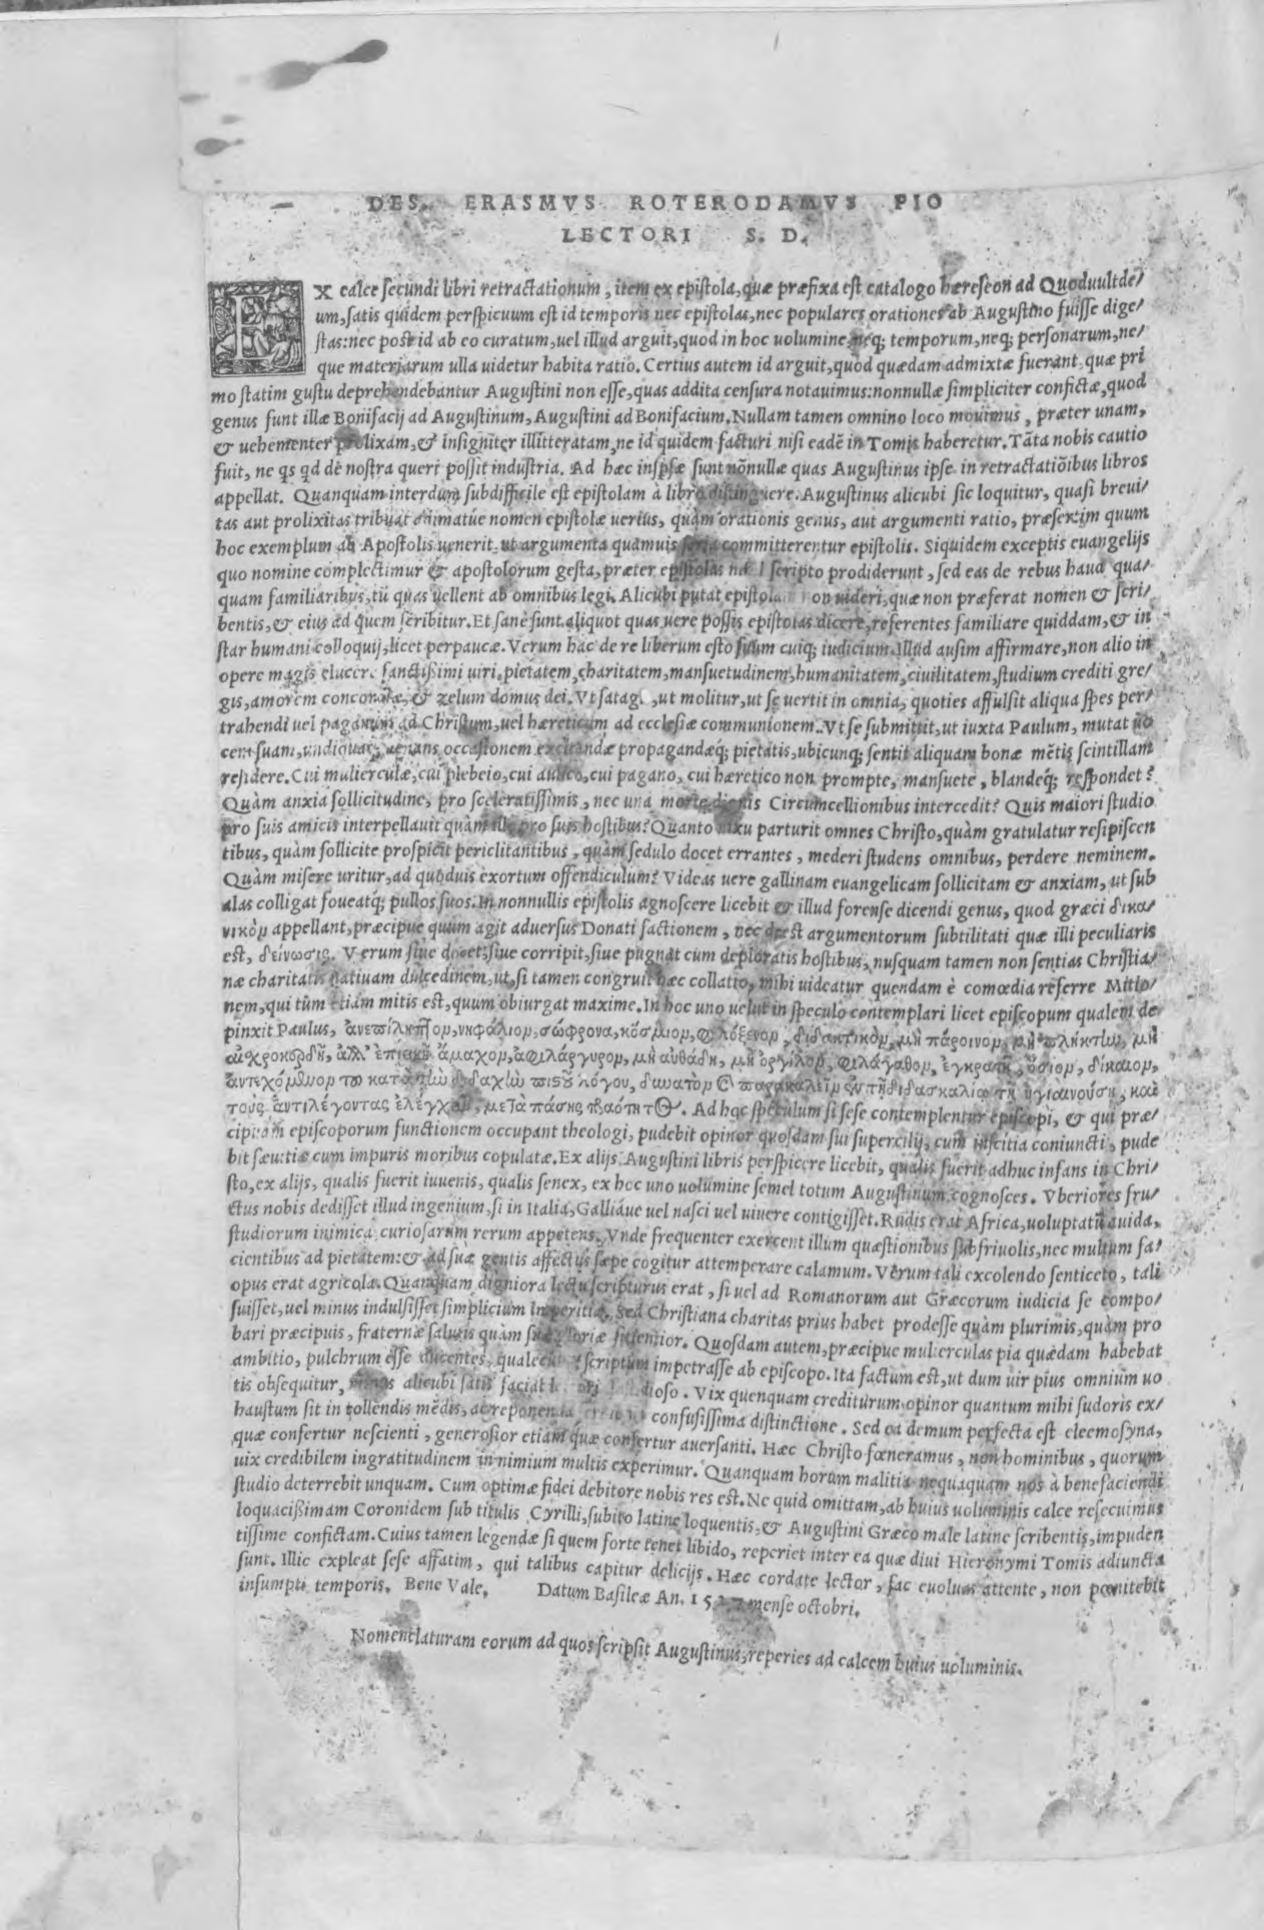 DES. ERASMVS ROTERODAMVS PIO
LECTORI S. D.
EX calce ſecundi libri retractationum, item ex epiſtola, quæ præfixa eſt catalogo hæreſeon ad Quoduultde/
um, ſatis quidem perſpicuum eſt id temporis nec epiſtolas, nec populares orationes ab Auguſtino fuiſſe dige/
ſtas: nec poſt id ab eo curatum, uel illud arguit, quod in hoc uolumine neq; temporum, neq; perſonarum, ne/
que materiarum ulla uidetur habita ratio. Certius autem id arguit, quod quædam admixtæ fuerant, quæ pri
mo ſtatim guſtu deprehendebantur Auguſtini non eſſe, quas addita cenſura notauimus: nonnullæ ſimpliciter confictæ, quod
genus ſunt illæ Bonifacij ad Auguſtinum, Auguſtini ad Bonifacium. Nullam tamen omnino loco mouimus, præter unam,
& uehementer prolixam, & inſigniter illitteratam, ne id quidem facturi niſi eadē in Tomis haberetur. Tāta nobis cautio
fuit, ne qs qd dē noſtra queri poſſit induſtria. Ad hæc inſpſæ ſunt nōnullæ quas Auguſtinus ipſe in retractatiōibus libros
appellat. Quanquam interdum ſubdifficile eſt epiſtolam à libro diſtinguere. Auguſtinus alicubi ſic loquitur, quaſi breui/
tas aut prolixitas tribuat adimatúe nomen epiſtolæ uerius, quàm orationis genus, aut argumenti ratio, præſertim quum
hoc exemplum ab Apoſtolis uenerit, ut argumenta quamuis ſeria committerentur epiſtolis. Siquidem exceptis euangelijs
quo nomine complectimur & apoſtolorum geſta, præter epiſtolas nihil ſcripto prodiderunt, ſed eas de rebus haud qua/
quam familiaribus, tū quas uellent ab omnibus legi. Alicubi putat epiſtolam non uideri, quæ non præferat nomen & ſcri/
bentis, & eius ad quem ſcribitur. Et ſanè ſunt aliquot quas uere poſſis epiſtolas dicere, referentes familiare quiddam, & in
ſtar humani colloquij, licet perpaucæ. Verum hac de re liberum eſto ſuum cuiq; iudicium. Illud auſim affirmare, non alio in
opere magis elucere ſanctißimi uiri, pietatem, charitatem, manſuetudinem, humanitatem, ciuilitatem, ſtudium crediti gre/
gis, amorem concordiæ, & zelum domus dei. Vt ſatagit, ut molitur, ut ſe uertit in omnia, quoties affulſit aliqua ſpes per/
trahendi uel paganum ad Chriſtum, uel hæreticum ad eccleſiæ communionem. Vt ſe ſubmittit, ut iuxta Paulum, mutat uo
cem ſuam, undiquaq; uenans occaſionem excitandæ propagandæq; pietatis, ubicunq; ſentit aliquam bonæ mētis ſcintillam
reſidere. Cui mulierculæ, cui plebeio, cui aulico, cui pagano, cui hæretico non prompte, manſuete, blandeq́; reſpondet?
Quàm anxia ſollicitudine, pro ſceleratiſſimis, nec una morte dignis Circumcellionibus intercedit? Quis maiori ſtudio
pro ſuis amicis interpellauit quàm ille pro ſuis hoſtibus? Quanto nixu parturit omnes Chriſto, quàm gratulatur reſipiſcen
tibus, quàm ſollicite proſpicit periclitantibus, quàm ſedulo docet errantes, mederi ſtudens omnibus, perdere neminem.
Quàm miſere uritur, ad quoduis exortum offendiculum? Videas uere gallinam euangelicam ſollicitam & anxiam, ut ſub
alas colligat foueatq́; pullos ſuos. In nonnullis epiſtolis agnoſcere licebit & illud forenſe dicendi genus, quod græci δικα/
νικὸν appellant, præcipue quum agit aduerſus Donati factionem, nec deeſt argumentorum ſubtilitati quæ illi peculiaris
eſt, δείνωσις. Verum ſiue docet, ſiue corripit, ſiue pugnat cum deploratis hoſtibus, nuſquam tamen non ſentias Chriſtia/
næ charitatis natiuam dulcedinem, ut, ſi tamen congruit hæc collatio, mihi uideatur quendam è comœdia referre Mitio/
nem, qui tùm etiam mitis eſt, quum obiurgat maxime. In hoc uno uelut in ſpeculo contemplari licet epiſcopum qualem de
pinxit Paulus, ἀνεπίληπτον, νηφάλιον, σώφρονα, κόσμιον, φιλόξενον, διδακτικὸν, μὴ πάροινον, μὴ πλήκτην, μὴ
αἰσχροκερδῆ, ἀλλ' ἐπιεικῆ ἄμαχον, ἀφιλάργυρον, μὴ αὐθάδη, μὴ ὀργίλον, φιλάγαθον, ἐγκρατῆ, ὅσιον, δίκαιον,
ἀντεχόμενον τοῦ κατὰ τὴν διδαχὴν πιστοῦ λόγου, δυνατὸν καὶ παρακαλεῖν ἐν τῇ διδασκαλίᾳ τῇ ὑγιαινούσῃ, καὶ
τοὺς ἀντιλέγοντας ἐλέγχειν, μετὰ πάσης πραότητος. Ad hoc ſpeculum ſi ſeſe contemplentur epiſcopi, & qui præ/
cipuam epiſcoporum functionem occupant theologi, pudebit opinor quoſdam ſui ſupercilij, cum inſcitia coniuncti, pude
bit ſæuitiæ cum impuris moribus copulatæ. Ex alijs Auguſtini libris perſpicere licebit, qualis fuerit adhuc infans in Chri/
ſto, ex alijs, qualis fuerit iuuenis, qualis ſenex, ex hoc uno uolumine ſemel totum Auguſtinum cognoſces. Vberiores fru/
ctus nobis dediſſet illud ingenium, ſi in Italia, Galliáue uel naſci uel uiuere contigiſſet. Rudis erat Africa, uoluptatū auida,
ſtudiorum inimica, curioſarum rerum appetens. Vnde frequenter exercent illum quæſtionibus ſubfriuolis, nec multum fa/
cientibus ad pietatem: & ad ſuæ gentis affectus ſæpe cogitur attemperare calamum. Verum tali excolendo ſenticeto, tali
opus erat agricola. Quanquam digniora lectu ſcripturus erat, ſi uel ad Romanorum aut Græcorum iudicia ſe compo/
ſuiſſet, uel minus indulſiſſet ſimplicium imperitiæ. Sed Chriſtiana charitas prius habet prodeſſe quàm plurimis, quàm pro
bari præcipuis, fraternæ ſalutis quàm ſuæ gloriæ ſitientior. Quoſdam autem, præcipue mulierculas pia quædam habebat
ambitio, pulchrum eſſe ducentes, qualecunque ſcriptum impetraſſe ab epiſcopo. Ita factum eſt, ut dum uir pius omnium uo
tis obſequitur, minus alicubi ſatis faciat lectori faſtidioſo. Vix quenquam crediturum opinor quantum mihi ſudoris ex/
hauſtum ſit in tollendis mēdis, ac reponenda confuſiſſima diſtinctione. Sed ea demum perfecta eſt eleemoſyna,
quæ confertur neſcienti, generoſior etiam quæ confertur auerſanti. Hæc Chriſto fœneramus, non hominibus, quorum
uix credibilem ingratitudinem in nimium multis experimur. Quanquam horum malitia nequaquam nos à benefaciendi
ſtudio deterrebit unquam. Cum optimæ fidei debitore nobis res eſt. Ne quid omittam, ab huius uoluminis calce reſecuimus
loquacißimam Coronidem ſub titulis Cyrilli, ſubito latine loquentis, & Auguſtini Græco male latine ſcribentis, impuden
tiſſime confictam. Cuius tamen legendæ ſi quem forte tenet libido, reperiet inter ea quæ diui Hieronymi Tomis adiuncta
ſunt. Illic expleat ſeſe affatim, qui talibus capitur delicijs. Hæc cordate lector, fac euoluas attente, non pœnitebit
inſumpti temporis. Bene Vale. Datum Baſileæ An. 1527 menſe octobri.
Nomenclaturam eorum ad quos ſcripſit Auguſtinus, reperies ad calcem huius uoluminis.